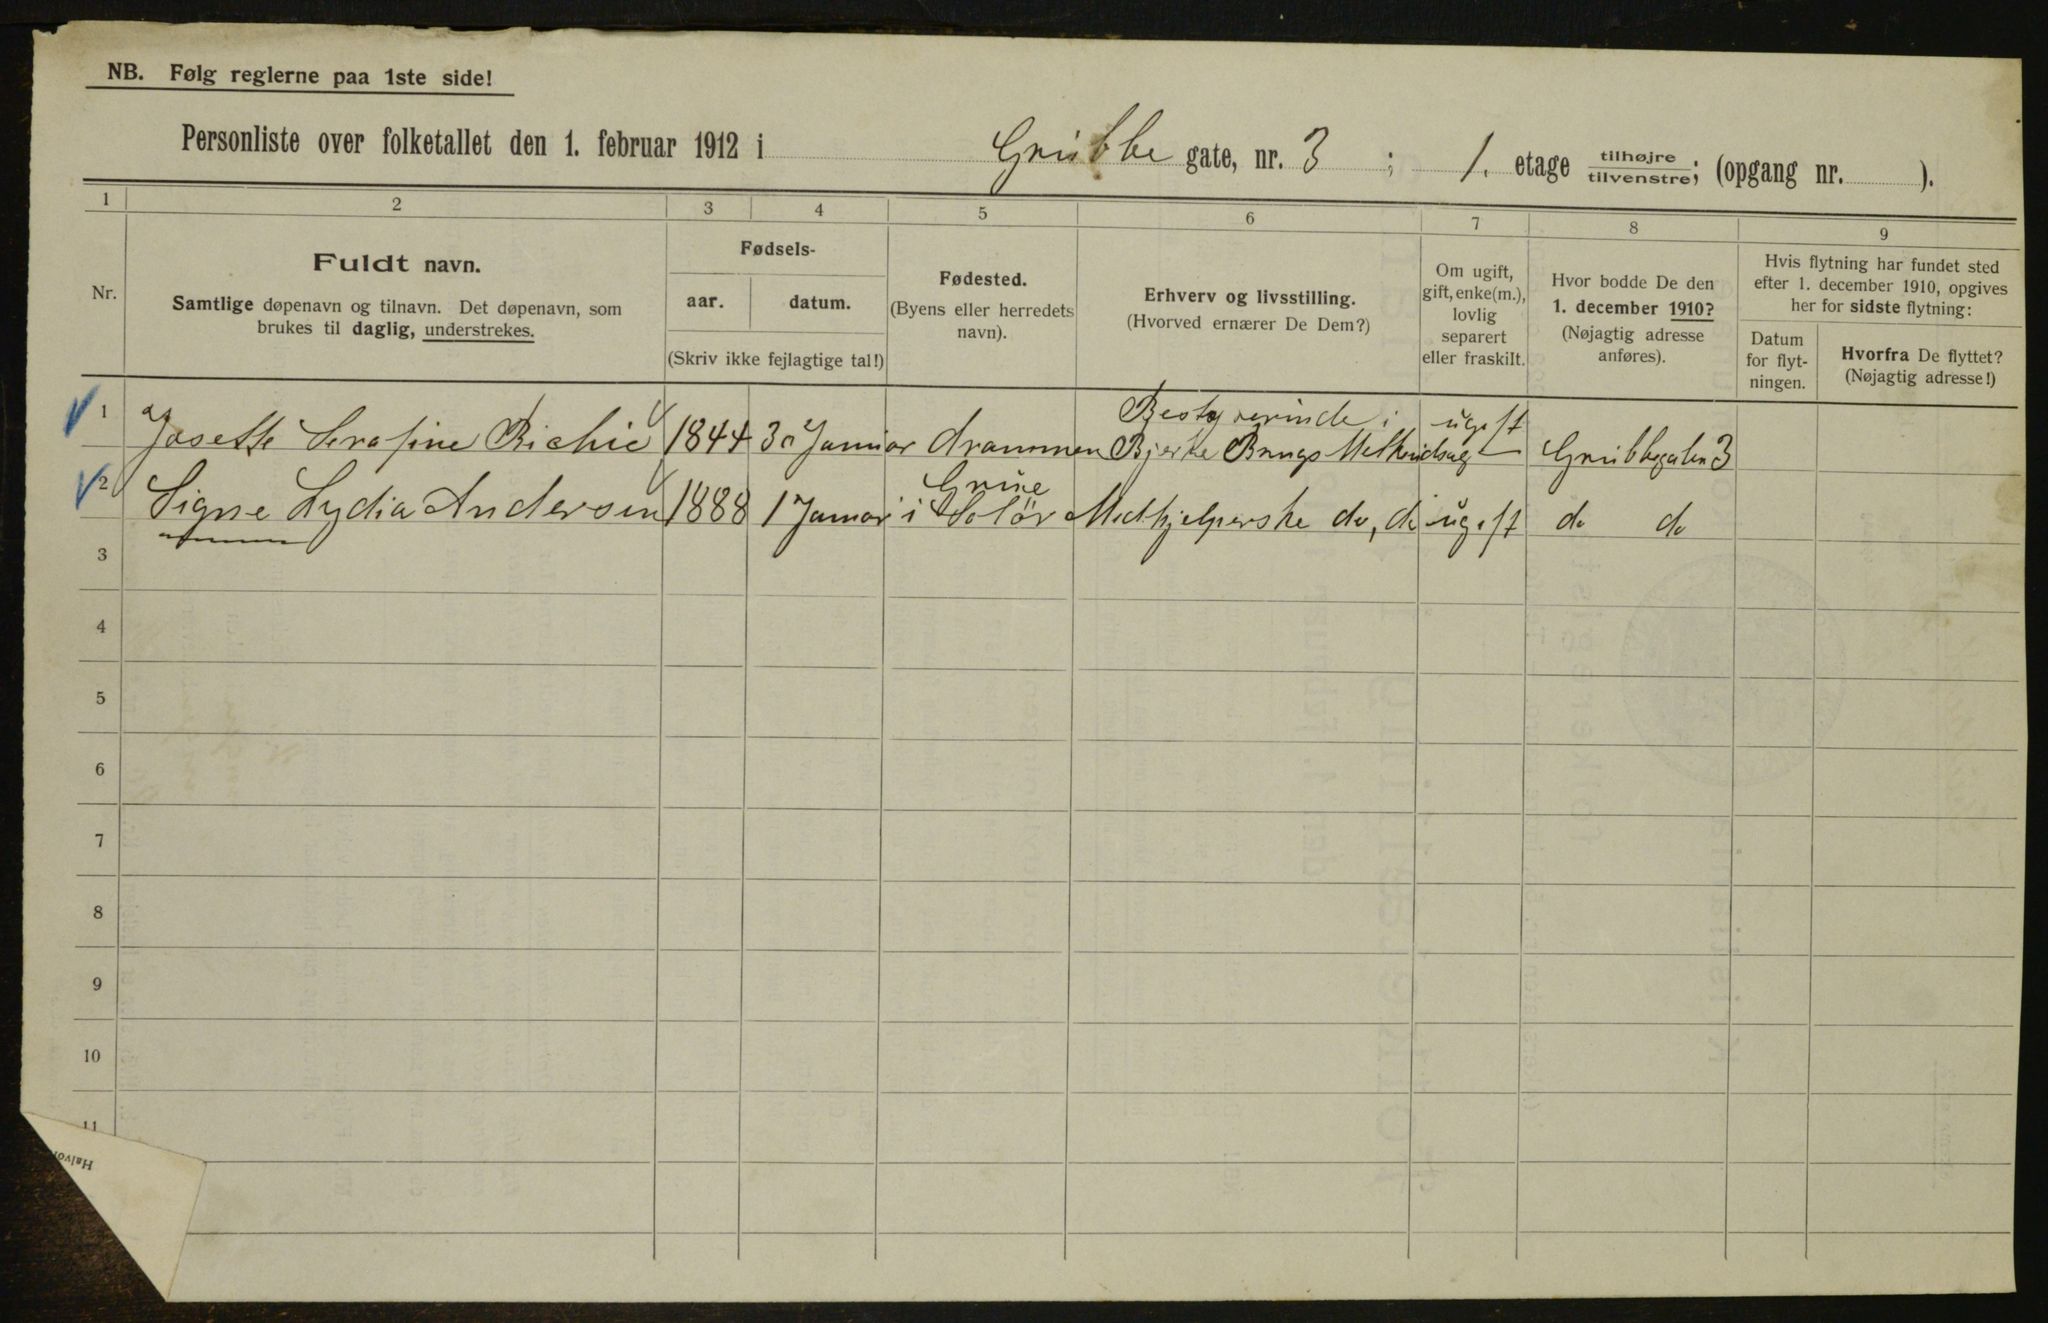 NB. Følg reglerne paa 1ste side!
Personliste over folketallet den 1. februar 1912 i Grubbe gate, nr. 3 ; 1. etage tilhøjre/tilvenstre; (opgang nr. ).
1 2 3 4 5 6 7 8 9
Nr.
Fuldt navn.
Samtlige døpenavn og tilnavn. Det døpenavn, som
brukes til daglig, understrekes.
Fødsels-
aar. datum.
(Skriv ikke fejlagtige tal!)
Fødested.
(Byens eller herredets
navn).
Erhverv og livsstilling.
(Hvorved ernærer De Dem?)
Om ugift,
gift, enke(m.),
lovlig
separert
eller fraskilt.
Hvor bodde De den
1. december 1910?
(Nøjagtig adresse
anføres).
Hvis flytning har fundet sted
efter 1. december 1910, opgives
her for sidste flytning:
Datum
for flyt-
ningen.
Hvorfra De flyttet?
(Nøjagtig adresse!)
1 Josette Serafine Richie 1844 30 Januar drammen Bestyrerinde i Bjerke Brugs Melkeudsalg ugift Grubbegaten 3
2 Signe Lydia Andersen 1888 1 Januar Grue i Solör Medhjelperske do, do ugift do do
3
4
5
6
7
8
9
10
11
Halvor